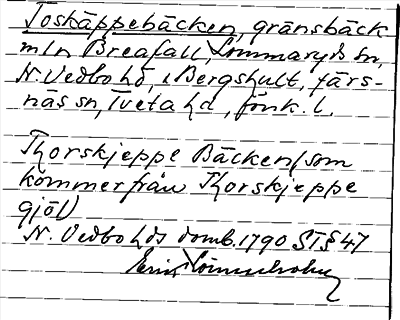 Toskäppebäcken, gränsbäck
mln Breafall, Lommaryds sn,
N. Vedbo hd, o Bergshult, Järs-
näs sn, Tveta hd, Jönk. l.
Thorskjeppe Bäcken (som
kommer från Thorskjeppe
gjöl)
N. Vedbo hds domb. 1790 ST § 47
Erik